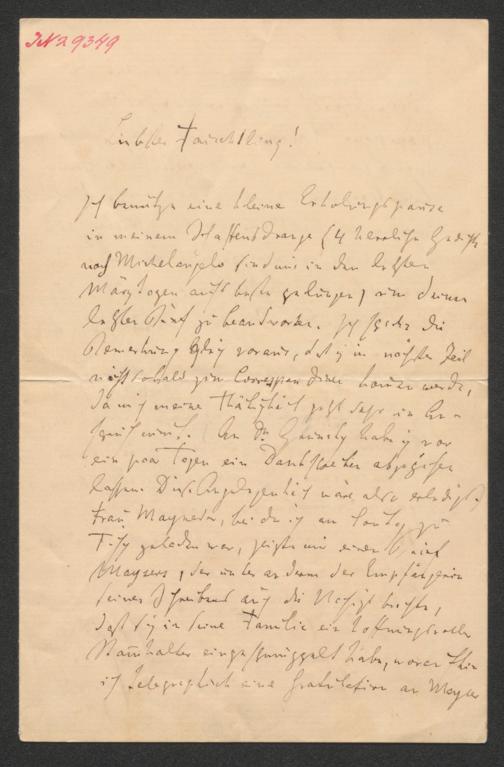 JN 29349
Liebster Faisstling!
Ich benütze eine kleine Erholungspause
in meinem Schaffensdrange (4 herrliche Gedichte
nach Michelangelo sind mir in den letzten
Märztagen aufs beste gelungen) um Deinen
letzten Brief zu beantworten. Ich schicke die
Bemerkung voraus, daß ich in nächster Zeit
nicht sobald zum Correspondiren kommen werde,
da mich meine Thätigkeit jetzt sehr in An-
spruch nimmt. An Dr. habe ich vor
ein paar Tagen ein Dankschreiben abgehen
lassen. Diese Angelegenheit wäre also erledigt.
Frau Mayreder, bei der ich am Sonntag zu
Tisch geladen war, zeigte mir einen Brief
Maysers, der unter anderm der Empfängerin
seines Schreibens auch die Nachricht brachte,
daß sich in seine Familie ein hoffnungsvoller
Stammhalter eingeschmuggelt habe, worauf hin
ich telegraphisch eine Gratulation an Mayser